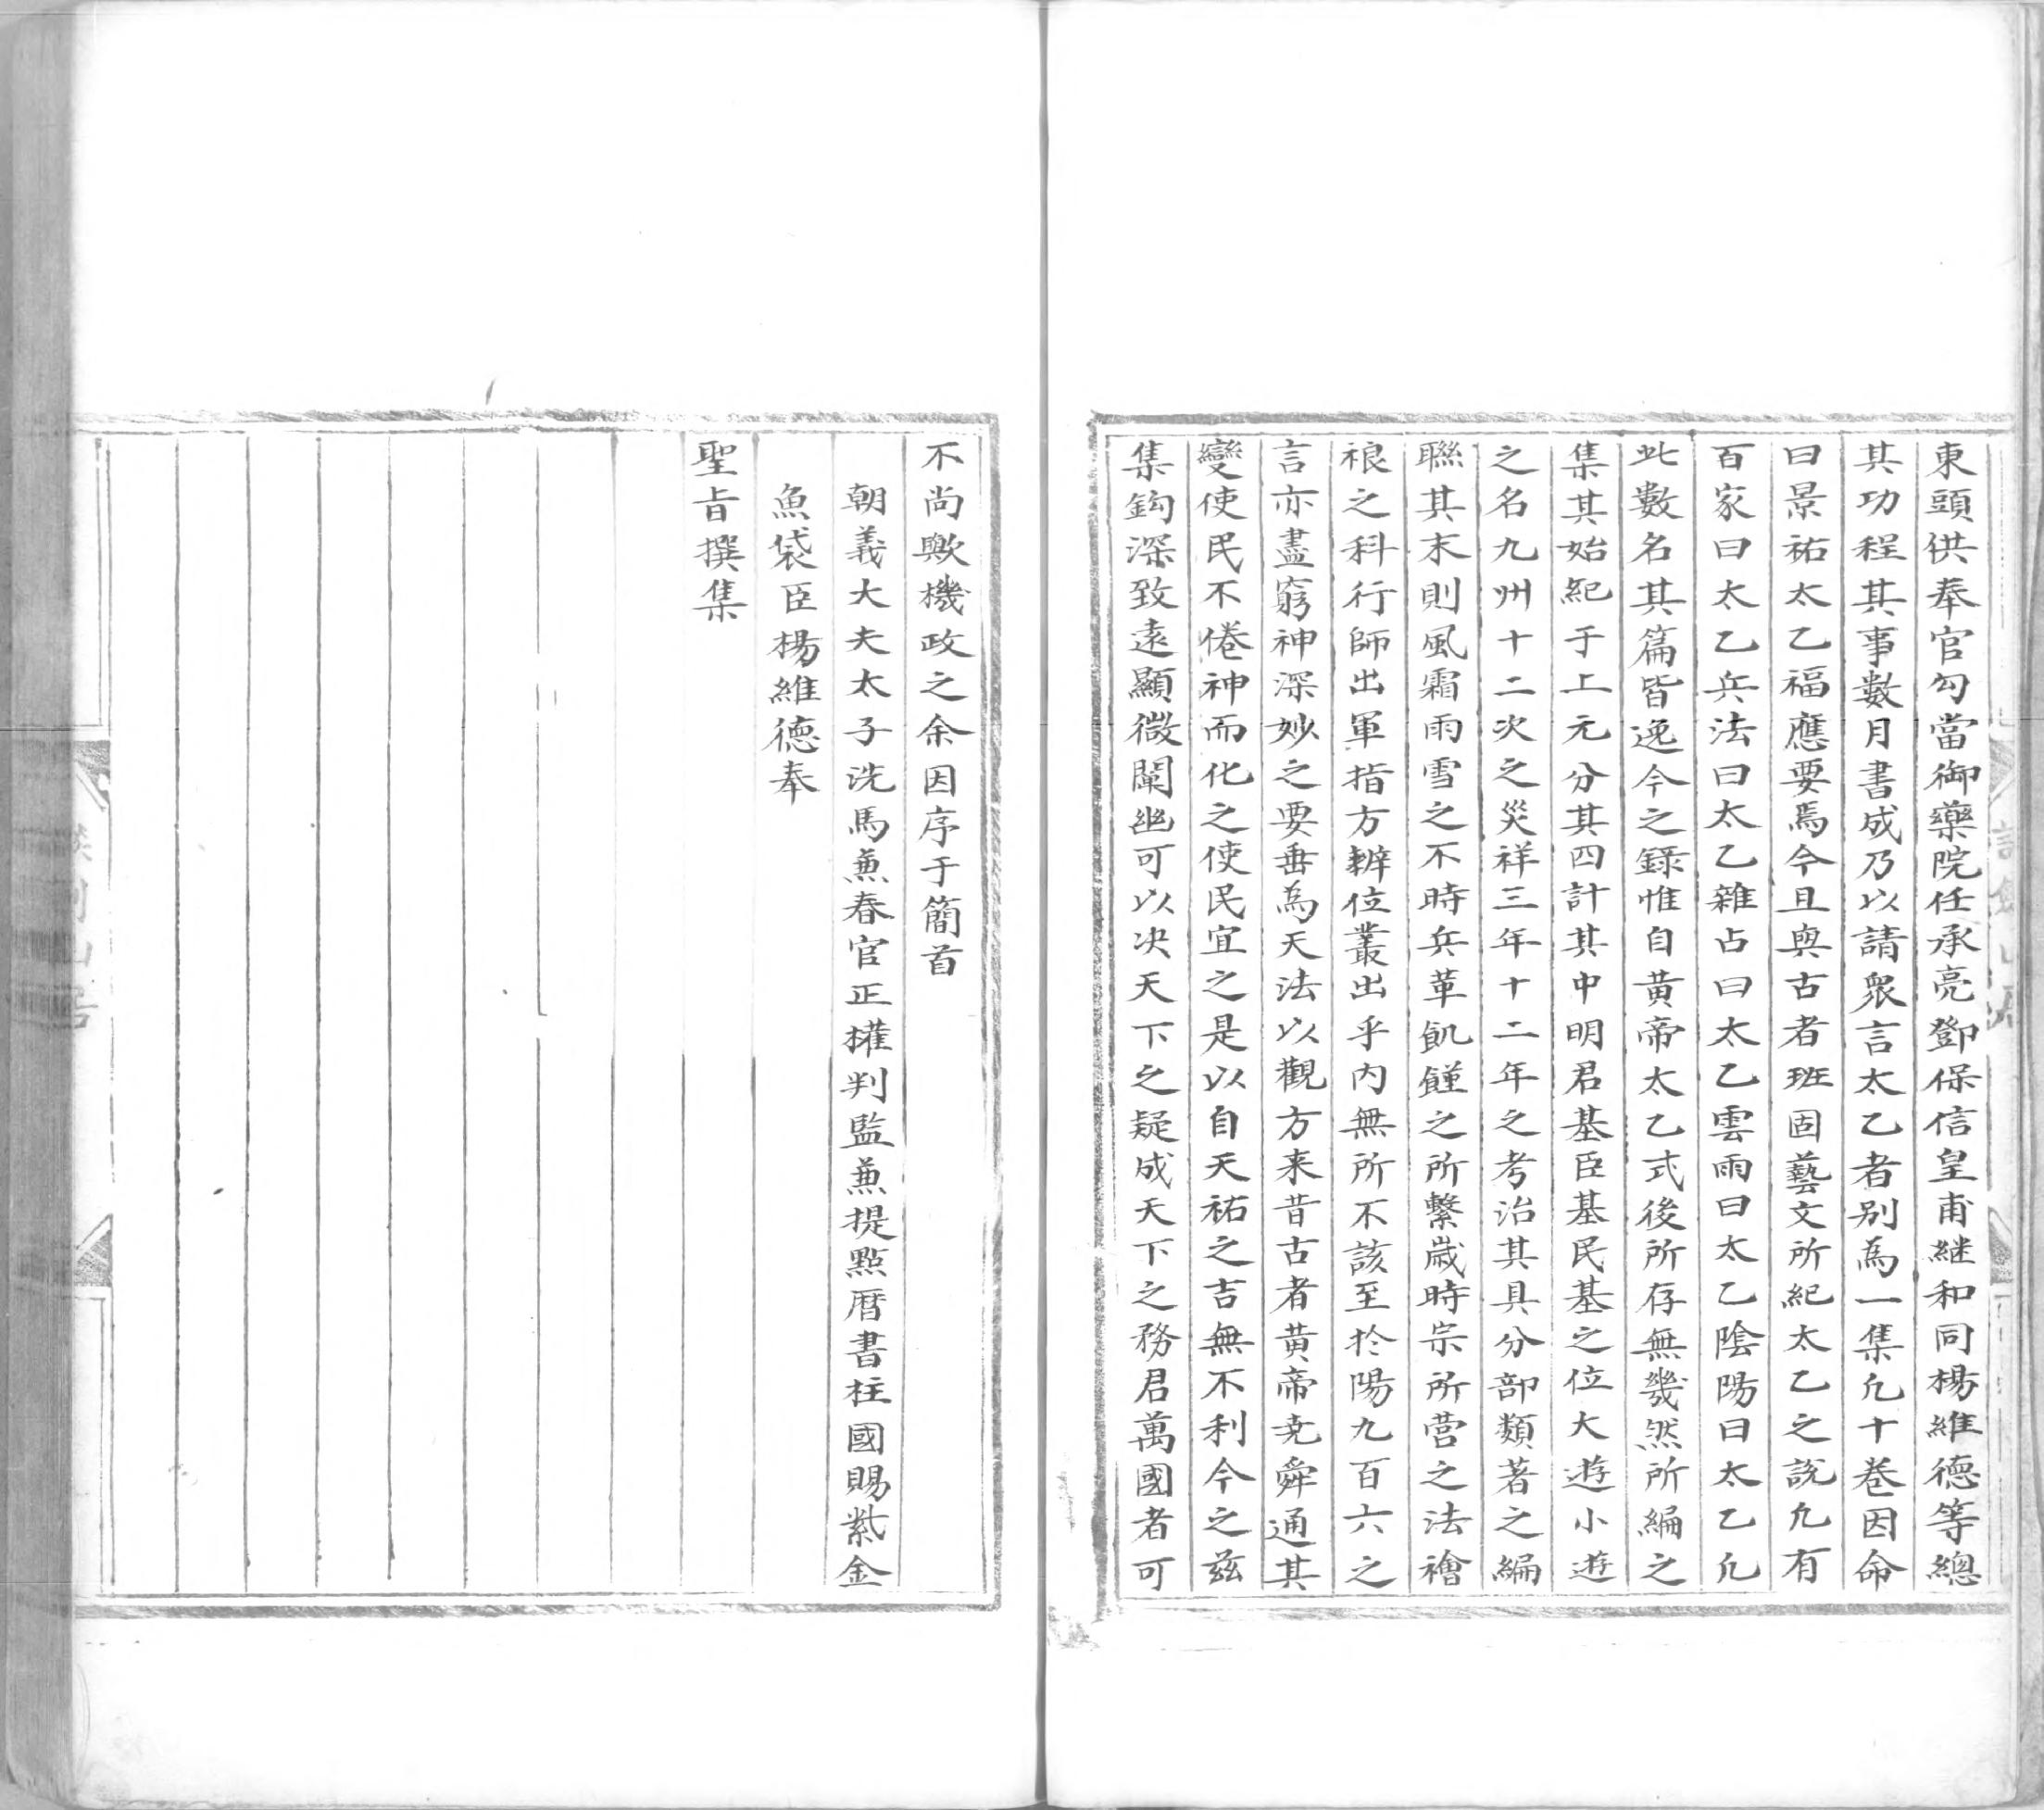 東頭供奉官勾當御藥院任承亮鄧保信皇甫継和同楊維德等總
其功程其事數月書成乃以請衆言太乙者别為一集凢十卷因命
曰景祐太乙福應要焉今且與古者班固藝文所紀太乙之說凢有
百家曰太乙兵法曰太乙雜占曰太乙雲雨曰太乙陰陽曰太乙凢
此數名其篇皆逸今之錄惟自黄帝太乙式後所存無幾然所編之
集其始紀于上元分其四計其中明君基臣基民基之位大遊小遊
之名九州十二次之災祥三年十二年之考治其具分部類著之編
聯其末則風霜雨雪之不時兵革飢饉之所繫歲時宗所营之法禬
祲之科行師出軍指方辨位叢出乎内無所不該至於陽九百六之
言亦盡窮神深妙之要垂為天法以觀方来昔古者黄帝尭舜通其
變使民不倦神而化之使民宜之是以自天祐之吉無不利今之兹
集鈎深致逺顯微闡幽可以决天下之疑成天下之務君萬國者可
不尚歟機政之余因序于簡首
朝義大夫太子洗馬兼春官正權判監兼提點曆書柱國賜紫金
魚袋臣楊維德奉
聖旨撰集